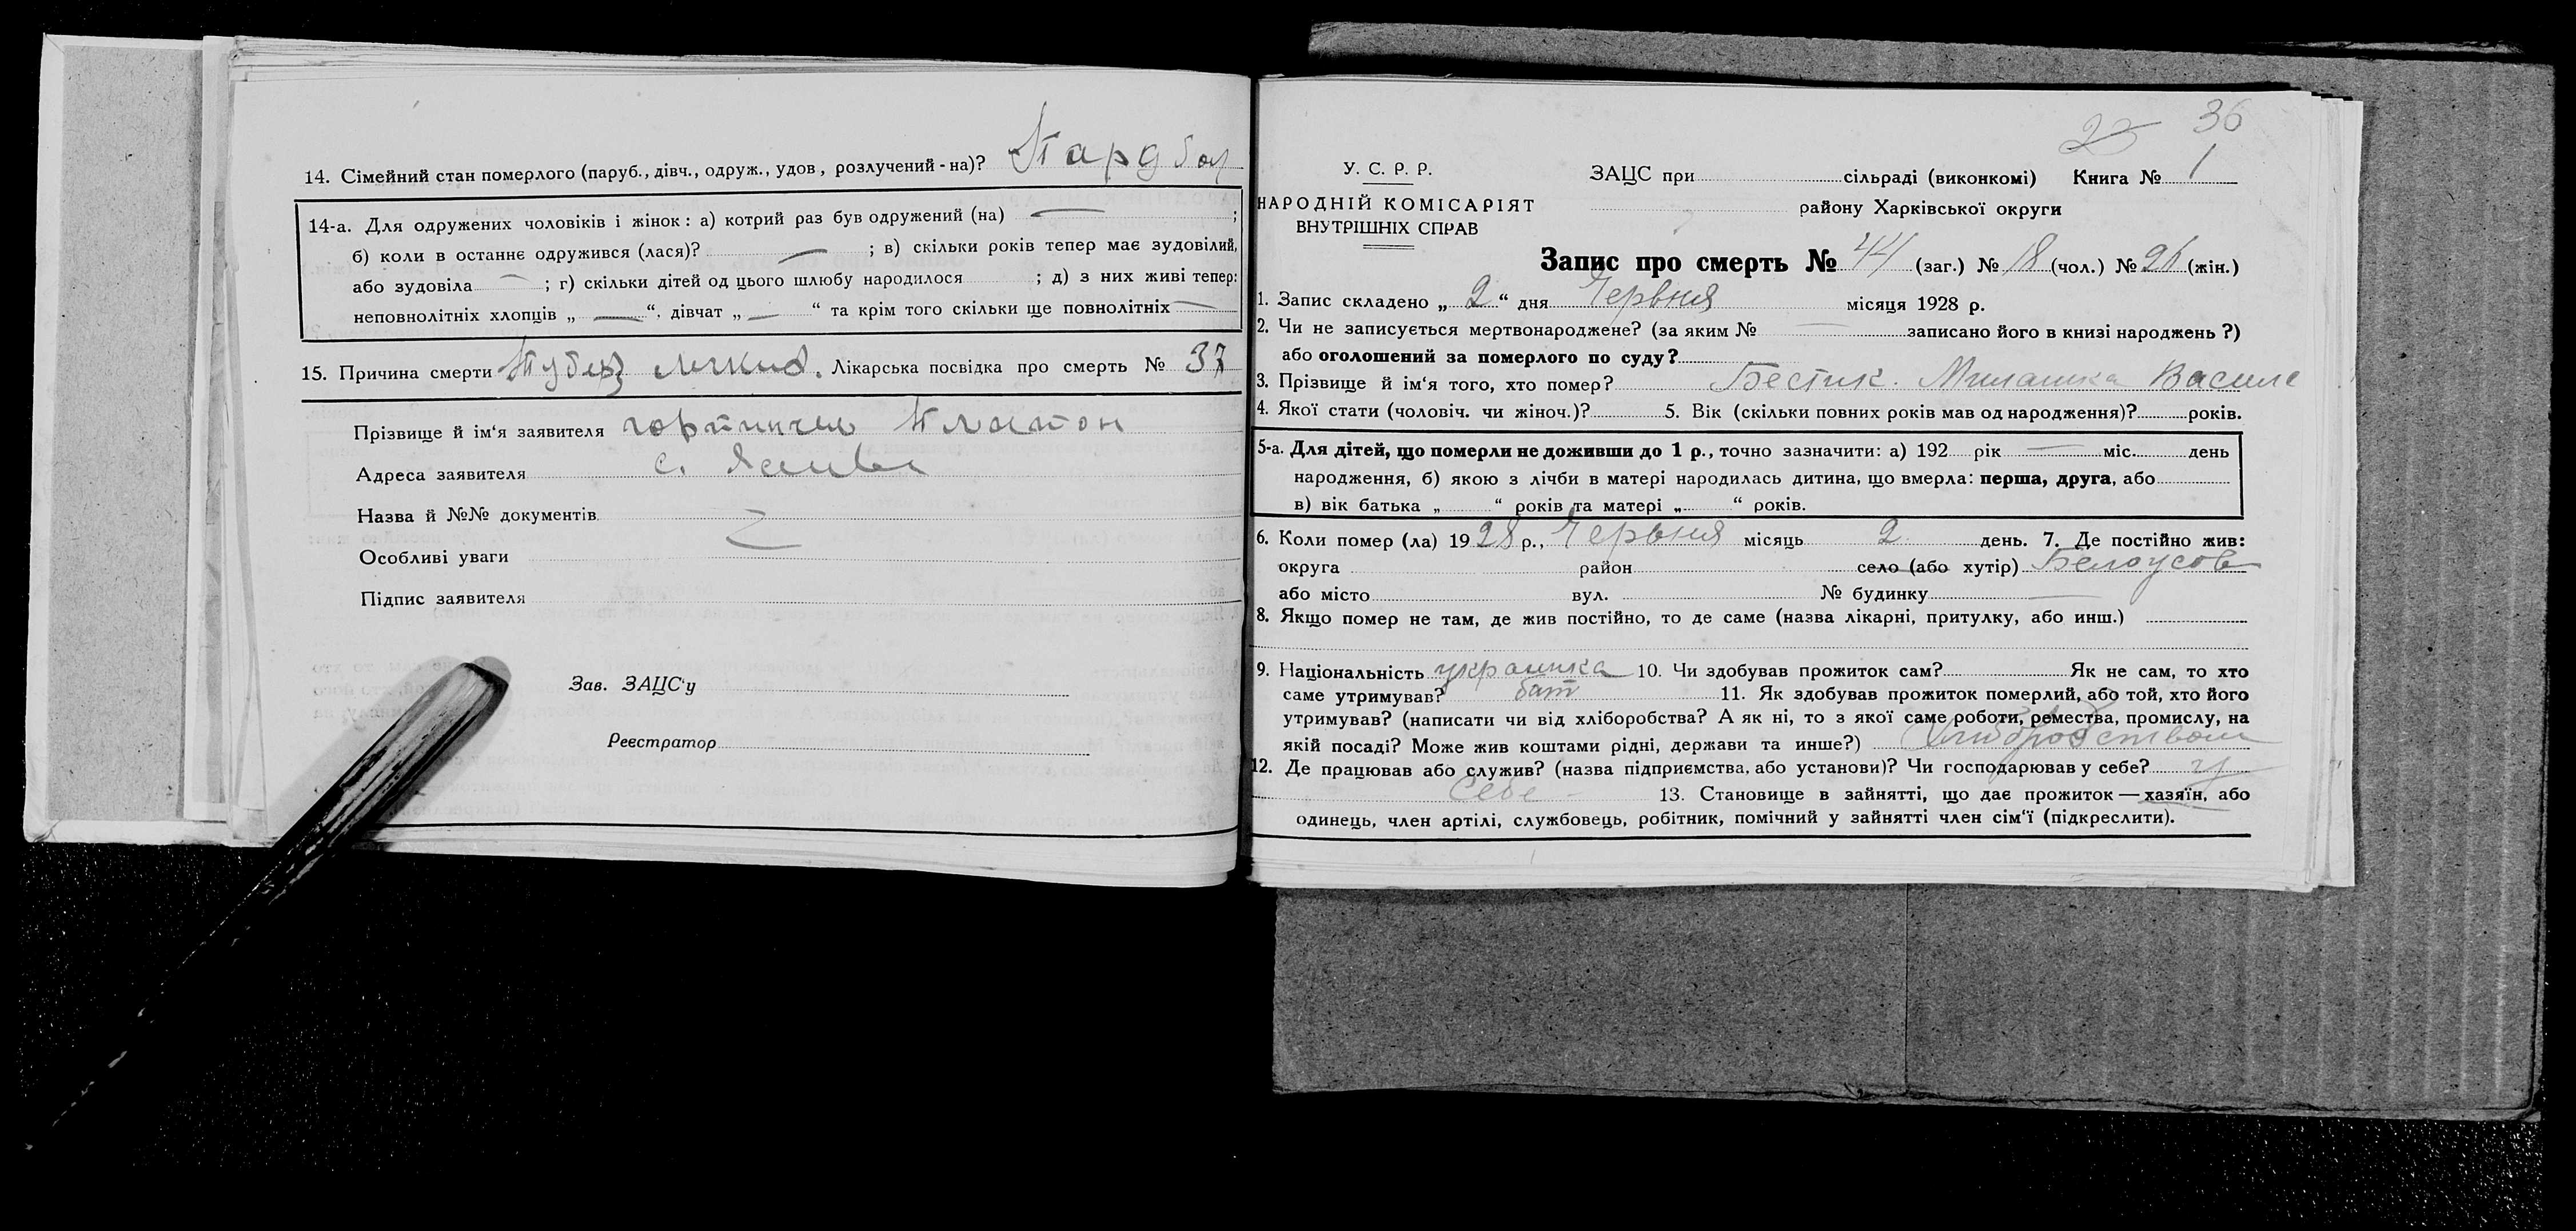 14. Сімейний стан померлого (паруб., дівч., одруж., удов, розлучений - на)?
14-а. Для одружених чоловіків і жінок: а) котрий раз був одружений (на) ;
б) коли в останнє одружився (лася)? ; в) скільки років тепер має зудовілий,
або зудовіла ; г) скільки дітей од цього шлюбу народилося ; д) з них живі тепер:
неповнолітніх хлопців „ “, дівчат „ “ та крім того скільки ще повнолітніх
15. Причина смерти Лікарська посвідка про смерть № 37
Прізвище й ім'я заявителя Платон
Адреса заявителя с.
Назва й №№ документів
Особливі уваги
Підпис заявителя
Зав. ЗАЦС'у
Реєстратор
23 36
У. С. Р. Р.
НАРОДНІЙ КОМІСАРІЯТ
ВНУТРІШНІХ СПРАВ
ЗАЦС при сільраді (виконкомі) Книга № 1
району Харківської округи
Запис про смерть № 44 (заг.) № 18 (чол.) № 26 (жін.)
1. Запис складено „ 2 “ дня Червня місяця 1928 р.
2. Чи не записується мертвонароджене? (за яким № записано його в книзі народжень ?)
або оголошений за померлого по суду?
3. Прізвище й ім'я того, хто помер? Бестик. Милашка Васил
4. Якої стати (чоловіч. чи жіноч.)? 5. Вік (скільки повних років мав од народження)? років.
5-а. Для дітей, що померли не доживши до 1 р., точно зазначити: а) 192 рік міс. день
народження, б) якою з лічби в матері народилась дитина, що вмерла: перша, друга, або
в) вік батька „ “ років та матері „ “ років.
6. Коли помер (ла) 1928 р., Червня місяць 2 день. 7. Де постійно жив:
округа район село (або хутір) Белоусов
або місто вул. № будинку
8. Якщо помер не там, де жив постійно, то де саме (назва лікарні, притулку, або инш.)
9. Національність украинка 10. Чи здобував прожиток сам? Як не сам, то хто
саме утримував? бат 11. Як здобував прожиток померлий, або той, хто його
утримував? (написати чи від хліборобства? А як ні, то з якої саме роботи, ремества, промислу, на
якій посаді? Може жив коштами рідні, держави та инше?)
12. Де працював або служив? (назва підприємства, або установи)? Чи господарював у себе? у
себе 13. Становище в зайнятті, що дає прожиток — хазяїн, або
одинець, член артілі, службовець, робітник, помічний у зайнятті член сім'ї (підкреслити).